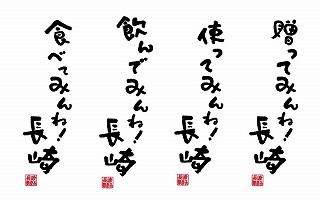 贈ってみんね!
長崎
使ってみんね!
長崎
飲んでみんね!
長崎
食べてみんね!
長崎